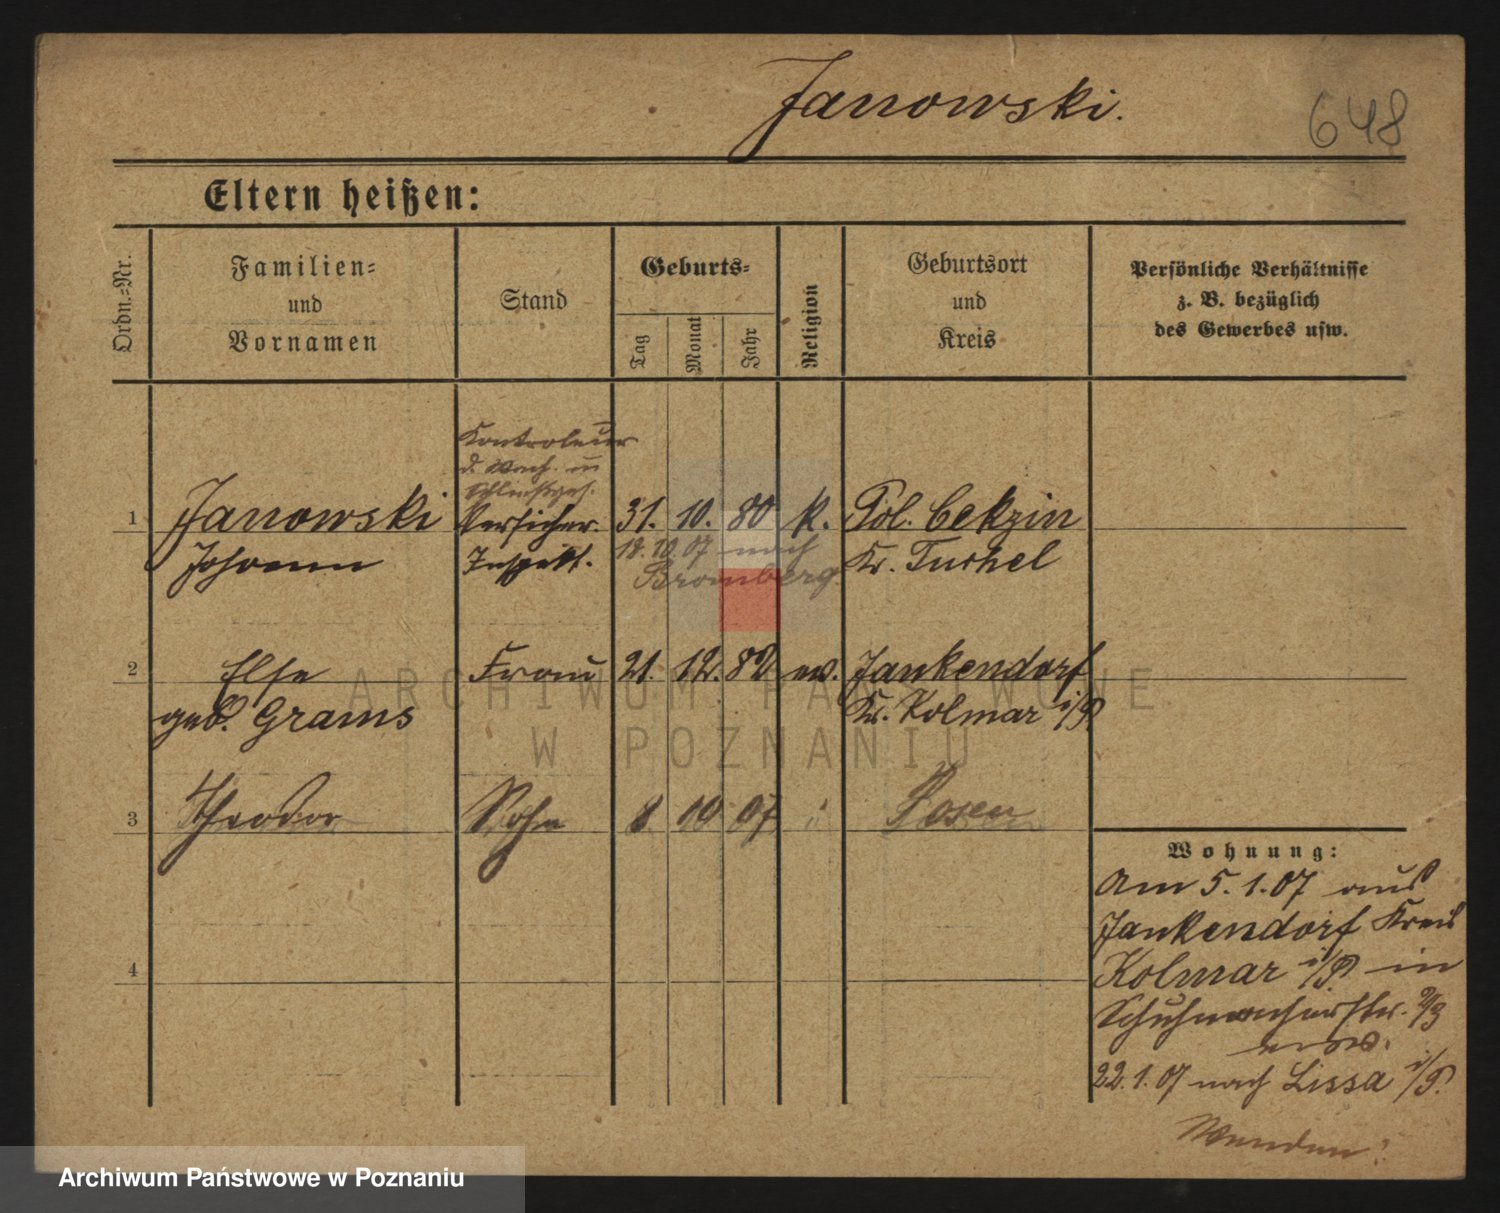 Janowski.
648
Eltern heißen:
Ordn.-Nr.
Familien-
und
Vornamen
Stand
Geburts-
Tag
Monat
Jahr
Religion
Geburtsort
und
Kreis
Persönliche Verhältnisse
z. B. bezüglich
des Gewerbes usw.
Kontroleur
d. Wach- u
Schließges.
1 Janowski Versicher. 31. 10. 80 k. Pol. Cekzin
Johann Inspekt. 18.10.07 nach Kr. Tuchel
Bromberg.
2 Else Frau 21. 12. 82 ev. Jankendorf
geb. Grams Kr. Kolmar i/P.
ARCHIWUM PAŃSTWOWE
W POZNANIU
3 Theodor Sohn 8 10 07 Posen
4
Wohnung:
Am 5.1.07 aus
Jankendorf Kreis
Kolmar i/P in
Schuhmacherstr. 2/3
22.1.07 nach Lissa i/P.
Wenden!
Archiwum Państwowe w Poznaniu